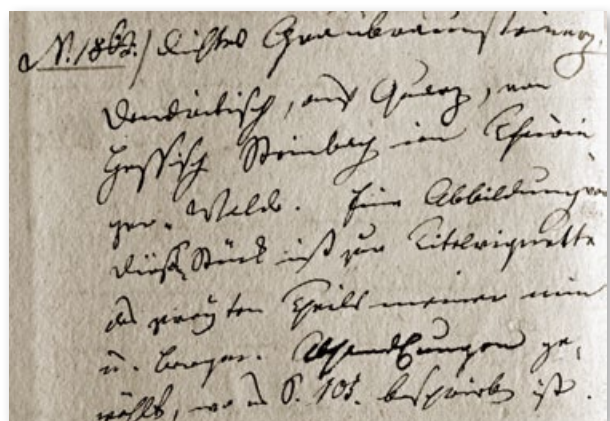 N. 1862.) dichtes Graubraunsteinerz.
Dendritisch, auf Quarz, von
Hessisch Steinbach im Thürin
ger-Wald. Eine Abbildung von
diesem Stück ist zur Titelvignette
des zweyten Theils meiner min
u. bergm. Abhandlungen ge,
wählt, wo es S. 105. beschrieben ist.